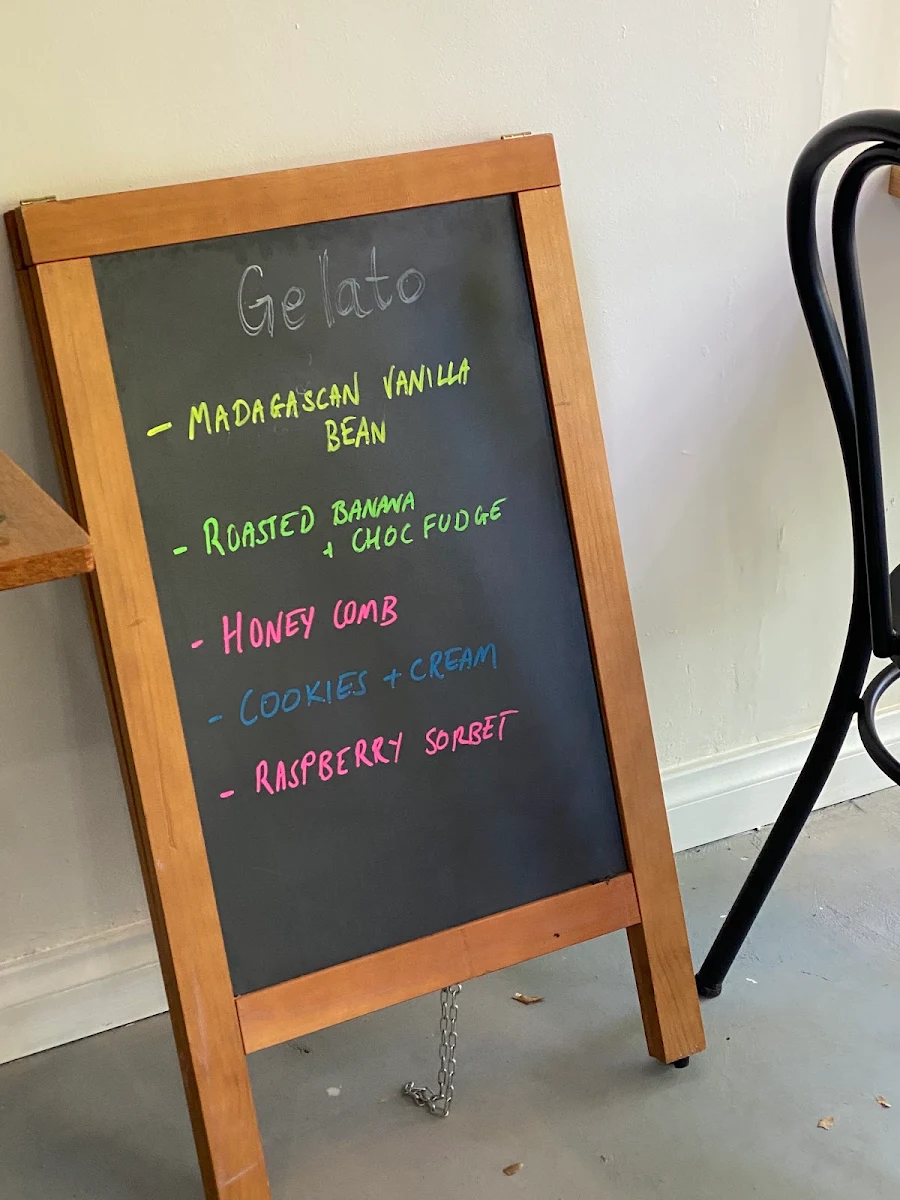 Gelato
- MADAGASCAN VANILLA
BEAN
- ROASTED BANANA
+ CHOC FUDGE
- HONEY COMB
- COOKIES + CREAM
- RASPBERRY SORBET